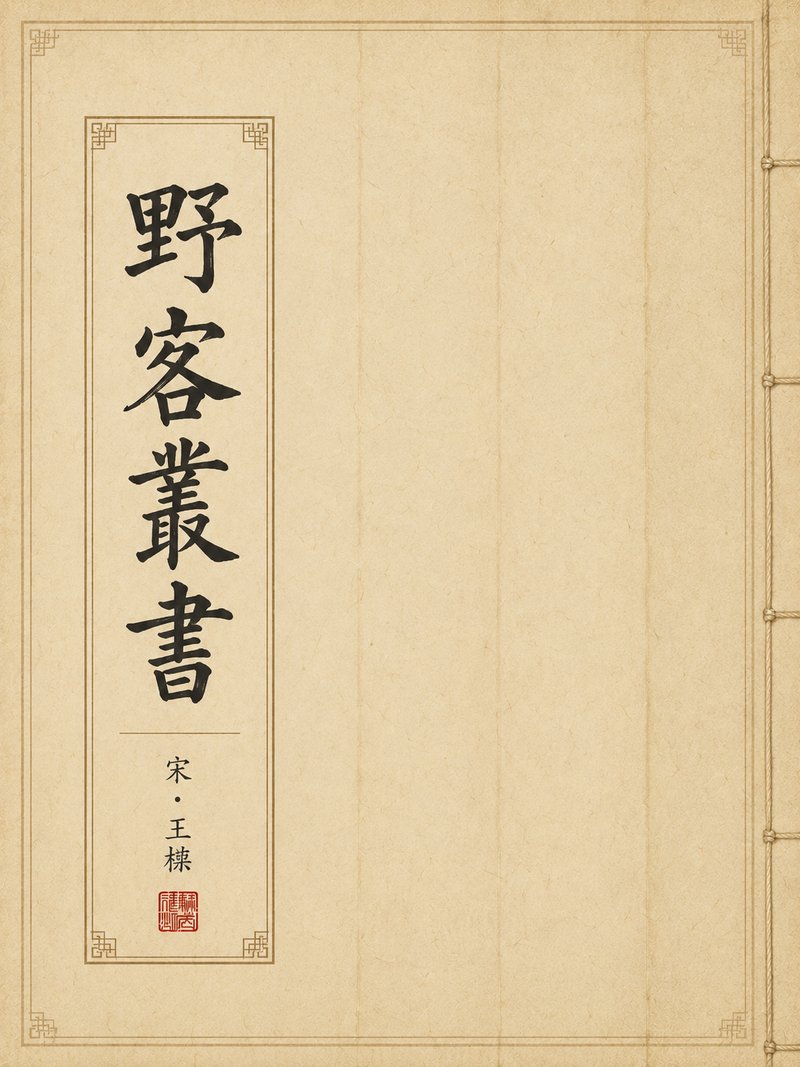 野客叢書
宋・王楙